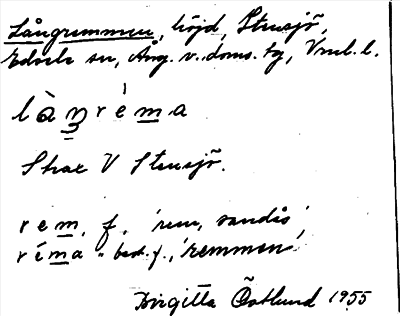 Långremmen, höjd, Stensjö,
Edsele sn, Ång. v. doms. tg, Vnl. l.
làŋréma
Shax V Stensjö.
rem, f. 'rem, sandås',
réma " best. f., 'remmen'
Birgitta Östlund 1955